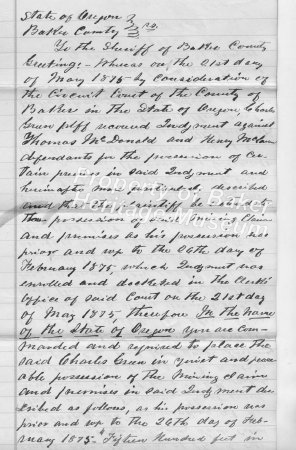 State of Oregon }
Baker County } ss.
To the Sheriff of Baker County
Greeting:- Whereas on the 21st day
of May 1875 by consideration of
the Circuit Court of the County of
Baker in the State of Oregon Charles
Green plff recovered Judgment against
Thomas McDonald and Henry
defendants for the possession of cer-
tain premises in said Judgment and
hereinafter described
and that plaintiff be
the possession of said Mining Claim
and premises as his possession was
prior and up to the 26th day of
February 1875, which Judgment was
enrolled and docketed in the Clerk's
Office of said Court on the 21st day
of May 1875, therefore In the name
of the State of Oregon you are com-
manded and required to place the
said Charles Green in quiet and peace-
able possession of the Mining Claim
and premises in said Judgment des-
cribed as follows, as his possession was
prior and up to the 26th day of Feb-
ruary 1875. "Fifteen Hundred feet in
Property of Baker